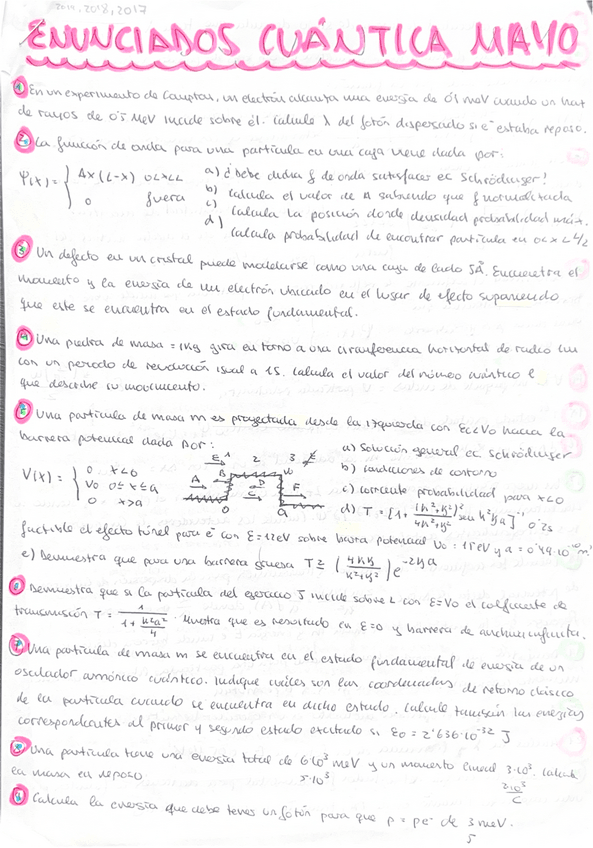 2019, 2018, 2017
ENUNCIADOS CUÁNTICA MAYO
1 En un experimento de Compton, un electrón alcanza una energía de 0'1 MeV cuando un haz
de rayos de 0'5 MeV incide sobre él. Calcule λ del fotón dispersado si e⁻ estaba reposo.
2 La función de onda para una partícula en una caja viene dada por:
Ψ(x) = { Ax(L-x) 0<x<L
0 fuera
a) ¿Debe dicha f de onda satisfacer ec Schrödinger?
b) Calcula el valor de A sabiendo que f normalizada
c) Calcula la posición donde densidad probabilidad máx.
d) Calcula probabilidad de encontrar partícula en 0<x<L/2
3 Un defecto en un cristal puede modelarse como una caja de lado 5Å. Encuentra el
momento y la energía de un electrón ubicado en el lugar de efecto suponiendo
que este se encuentra en el estado fundamental.
4 Una piedra de masa = 1Kg gira en torno a una circunferencia horizontal de radio 1m
con un periodo de revolución igual a 1S. Calcula el valor del número cuántico l
que describe su movimiento.
5 Una partícula de masa m es proyectada desde la izquierda con E<V₀ hacia la
barrera potencial dada por:
V(x) = { 0 x<0
V₀ 0≤x≤a
0 x>a
E 1 2 3
A B C D F
0 a
a) Solución general ec Schrödinger
b) Condiciones de contorno
c) Corriente probabilidad para x<0
d) T = [1 + (k²+k²)²/4k²k² sen k²a]⁻¹ 0'2s
factible el efecto túnel para e⁻ con E=12eV sobre barra potencial V₀=15eV y a=0'49·10⁻¹⁰m?
e) Demuestra que para una barrera gruesa T ≃ (4kk/k²+k²) e⁻²ᵏᵃ
6 Demuestra que si la partícula del ejercicio 5 incide sobre L con E=V₀ el coeficiente de
transmisión T = 1/(1 + k²a²/4). Muestra que es resultado en E=0 y barrera de anchura infinita.
7 Una partícula de masa m se encuentra en el estado fundamental de energía de un
oscilador armónico cuántico. Indique cuáles son las coordenadas de retorno clásico
de la partícula cuando se encuentra en dicho estado. Calcule también las energías
correspondientes al primer y segundo estado excitado si E₀ = 2'636·10⁻³² J
8 Una partícula tiene una energía total de 6·10³ MeV y un momento lineal 3·10³. Calcula
la masa en reposo 5·10³ 2·10³/c
9 Calcula la energía que debe tener un fotón para que p = pe⁻ de 3 MeV.
5